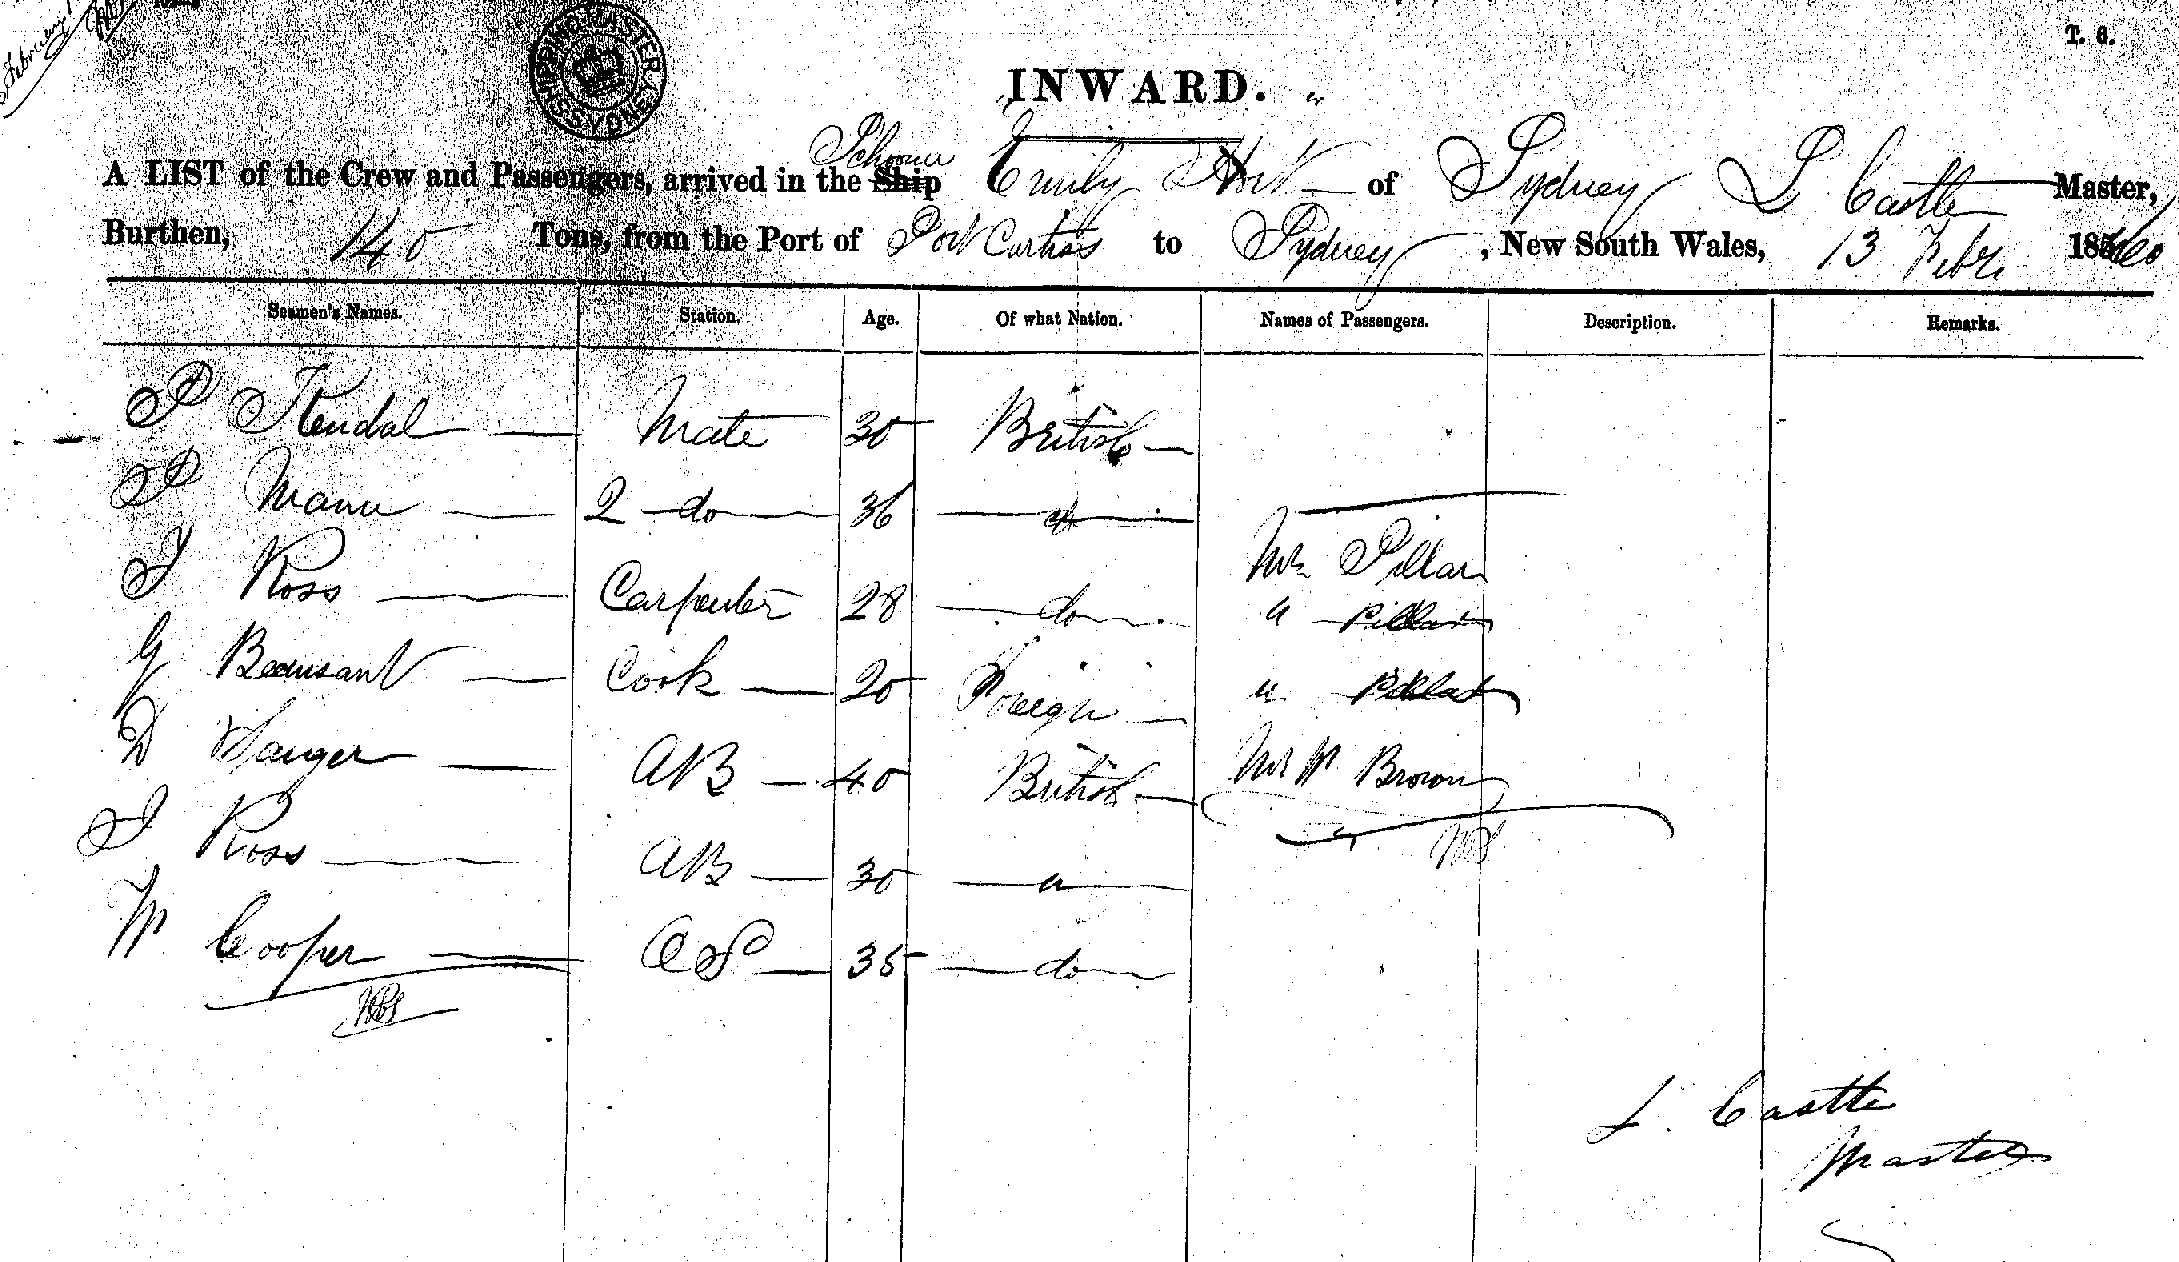 February
SHIPPING MASTER SYDNEY
T. 6.
INWARD.
A LIST of the Crew and Passengers, arrived in the Ship Schooner Emily Hort of Sydney L Castle Master,
Burthen, 140 Tons, from the Port of Port Curtis to Sydney, New South Wales, 13 Febr 1860
Seamen's Names. Station. Age. Of what Nation. Names of Passengers. Description. Remarks.
P Kendal Mate 30 British
P Mann 2 do 36 do
J Ross Carpenter 28 do Mr Pillar
G Beausant Cook 20 Foreign " Pillar
D Sanger AB 40 British " Pillar
J Ross AB 30 " Mr W Brown
W Cooper OS 35 do
L. Castle
Master